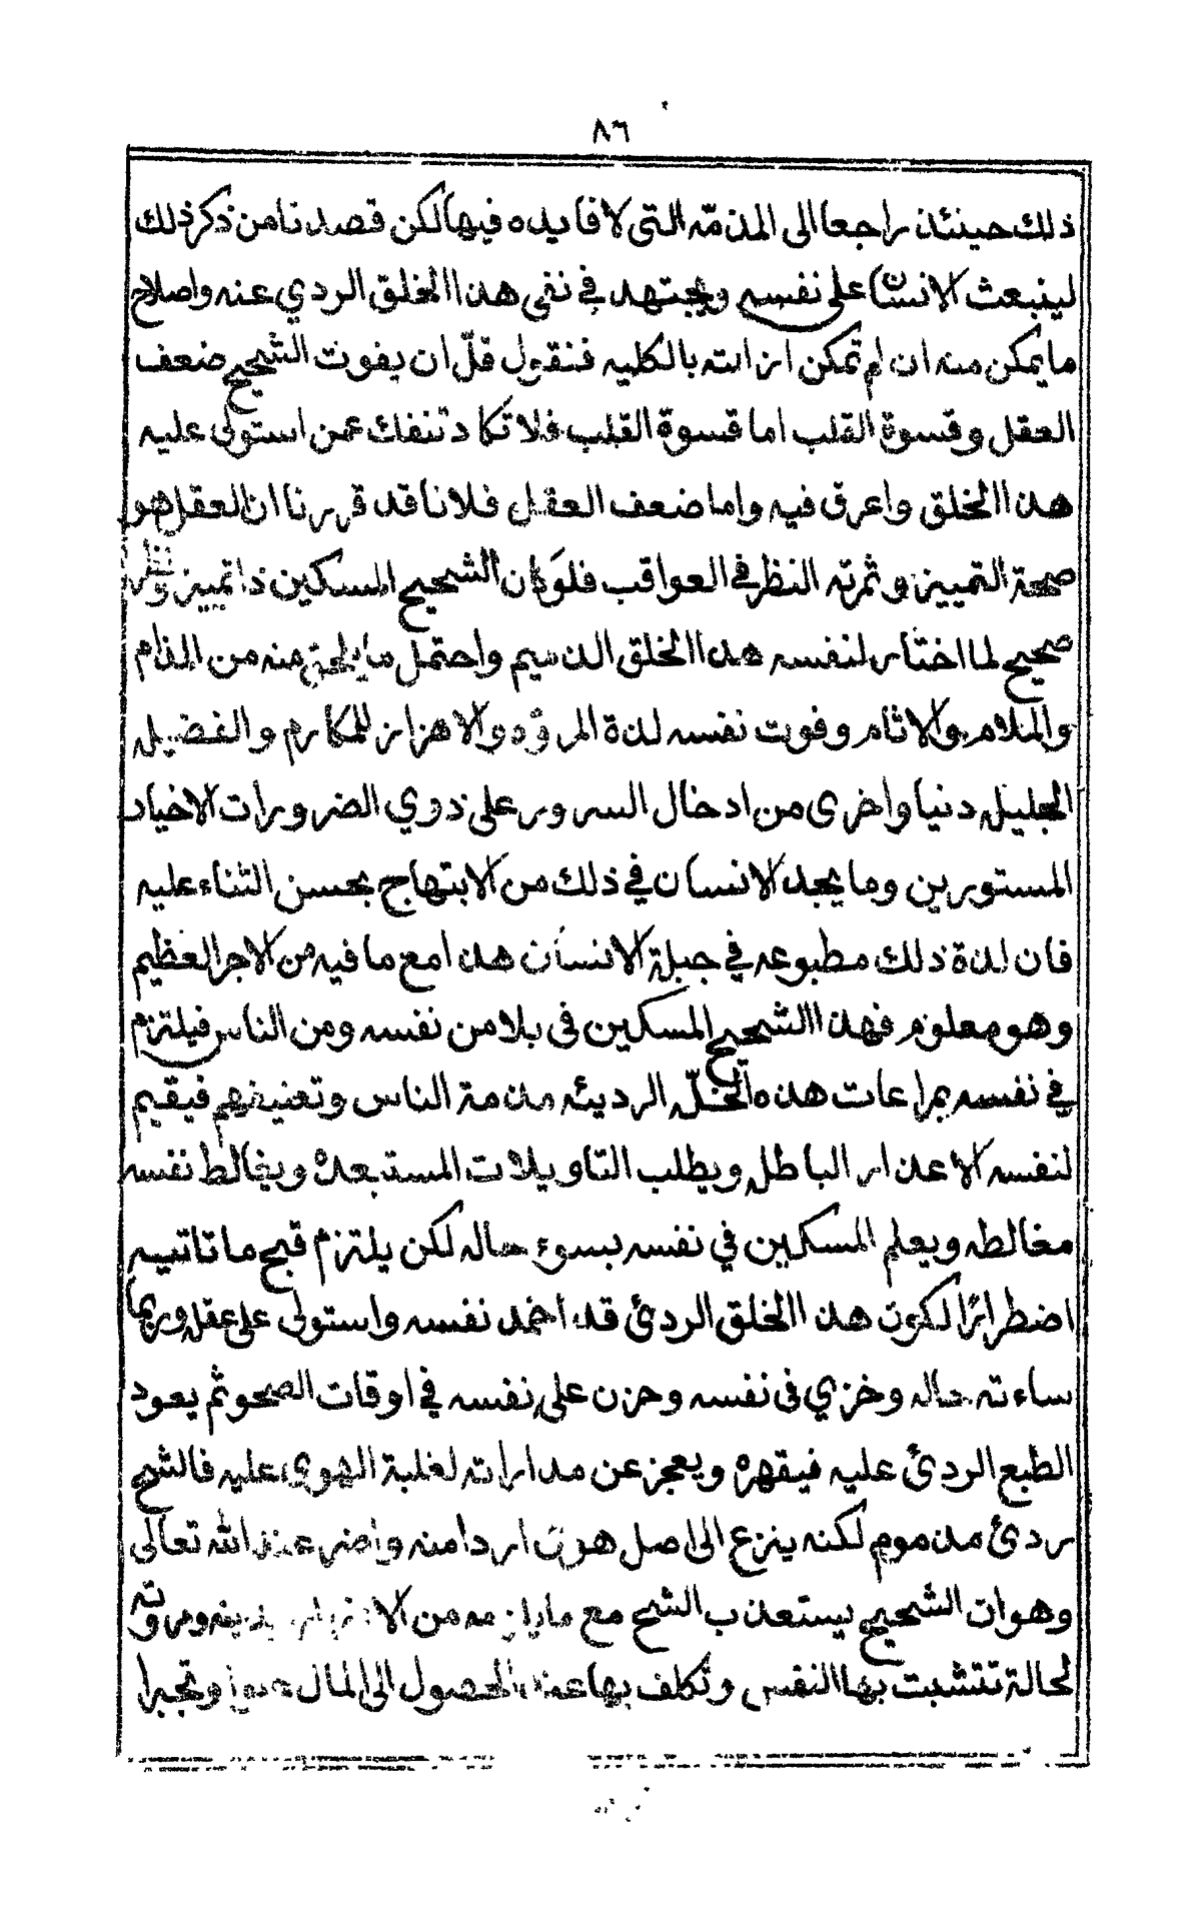 ٨٦
ذلك حينئذ راجعا الى المذمّه التى لا فايده فيها لكن قصدنا من ذكر ذلك
لينبعث الانسان على نفسه ويجتهد في نفى هذا الخلق الردي عنه واصلاح
ما يمكن منه ان لم تمكن ازالته بالكليه فنقول قلّ ان يفوت الشحيح ضعف
العقل وقسوة القلب اما قسوة القلب فلا تكاد تنفك عمن استولى عليه
هذا الخلق واعرق فيه واما ضعف العقل فلانا قد قررنا ان العقل هو
صحة التمييز وثمرته النظر في العواقب فلو كان الشحيح المسكين ذا تمييز ونظر
صحيح لما اختار لنفسه هذا الخلق الذميم واحتمل ما يلحق منه من المذام
والملام والاثام وفوت نفسه لذة المروءه والاهزاز للمكارم والفضيله
الجليله دنيا واخرى من ادخال السرور على ذوي الضرورات الاخيار
المستورين وما يجد الانسان في ذلك من الابتهاج بحسن الثناء عليه
فان لذة ذلك مطبوعه في جبلة الانسان هذا مع ما فيه من الاجر العظيم
وهو معلوم فهذا الشحيح المسكين في بلا من نفسه ومن الناس فيلتزم
في نفسه بمراعات هذه الخلّه الرديئه مذمة الناس وتعنيفهم فيقيم
لنفسه الاعذار الباطله ويطلب التاويلات المستبعدة ويغالط نفسه
مغالطه ويعلم المسكين في نفسه بسوء حاله لكن يلتزم قبح ما تاتيه
اضطرارًا لكون هذا الخلق الردئ قد اخمد نفسه واستولى على عقله وربما
ساءته حاله وخزي فى نفسه وحزن على نفسه في اوقات الصحو ثم يعود
الطبع الردئ عليه فيقهره ويعجز عن مداراته لغلبة الهوى عليه فالشح
ردئ مذموم لكنه ينزع الى اصل هو اردا منه واضر عند الله تعالى
وهو ان الشحيح يستعذب الشح مع ما من ومروته
لحالة تتشبت بها النفس وتكلف بها عند الحصول الى المال وتجبرا